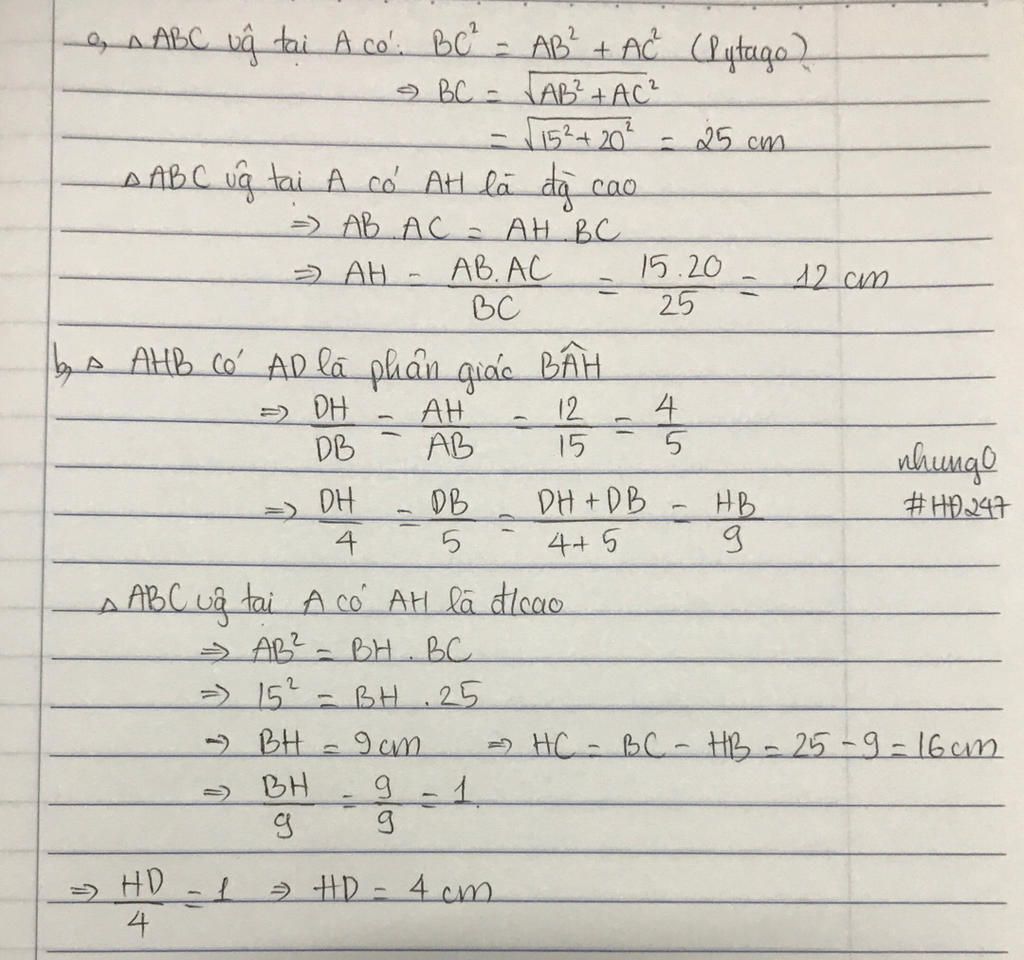 a, △ABC vg̃ tại A có: BC² = AB² + AC² (Pytago)
⇒ BC = √(AB² + AC²)
= √(15² + 20²) = 25 cm
△ABC vg̃ tại A có AH là đg̃ cao
⇒ AB.AC = AH.BC
⇒ AH = AB.AC/BC = 15.20/25 = 12 cm
b, △ AHB có AD là phân giác BÂH
⇒ DH/DB = AH/AB = 12/15 = 4/5
nhung0
⇒ DH/4 = DB/5 = (DH + DB)/(4 + 5) = HB/9
#HD247
△ABC vg̃ tại A có AH là đ/cao
⇒ AB² = BH . BC
⇒ 15² = BH . 25
⇒ BH = 9cm ⇒ HC = BC - HB = 25 - 9 = 16cm
⇒ BH/9 = 9/9 = 1.
⇒ HD/4 = 1 ⇒ HD = 4 cm